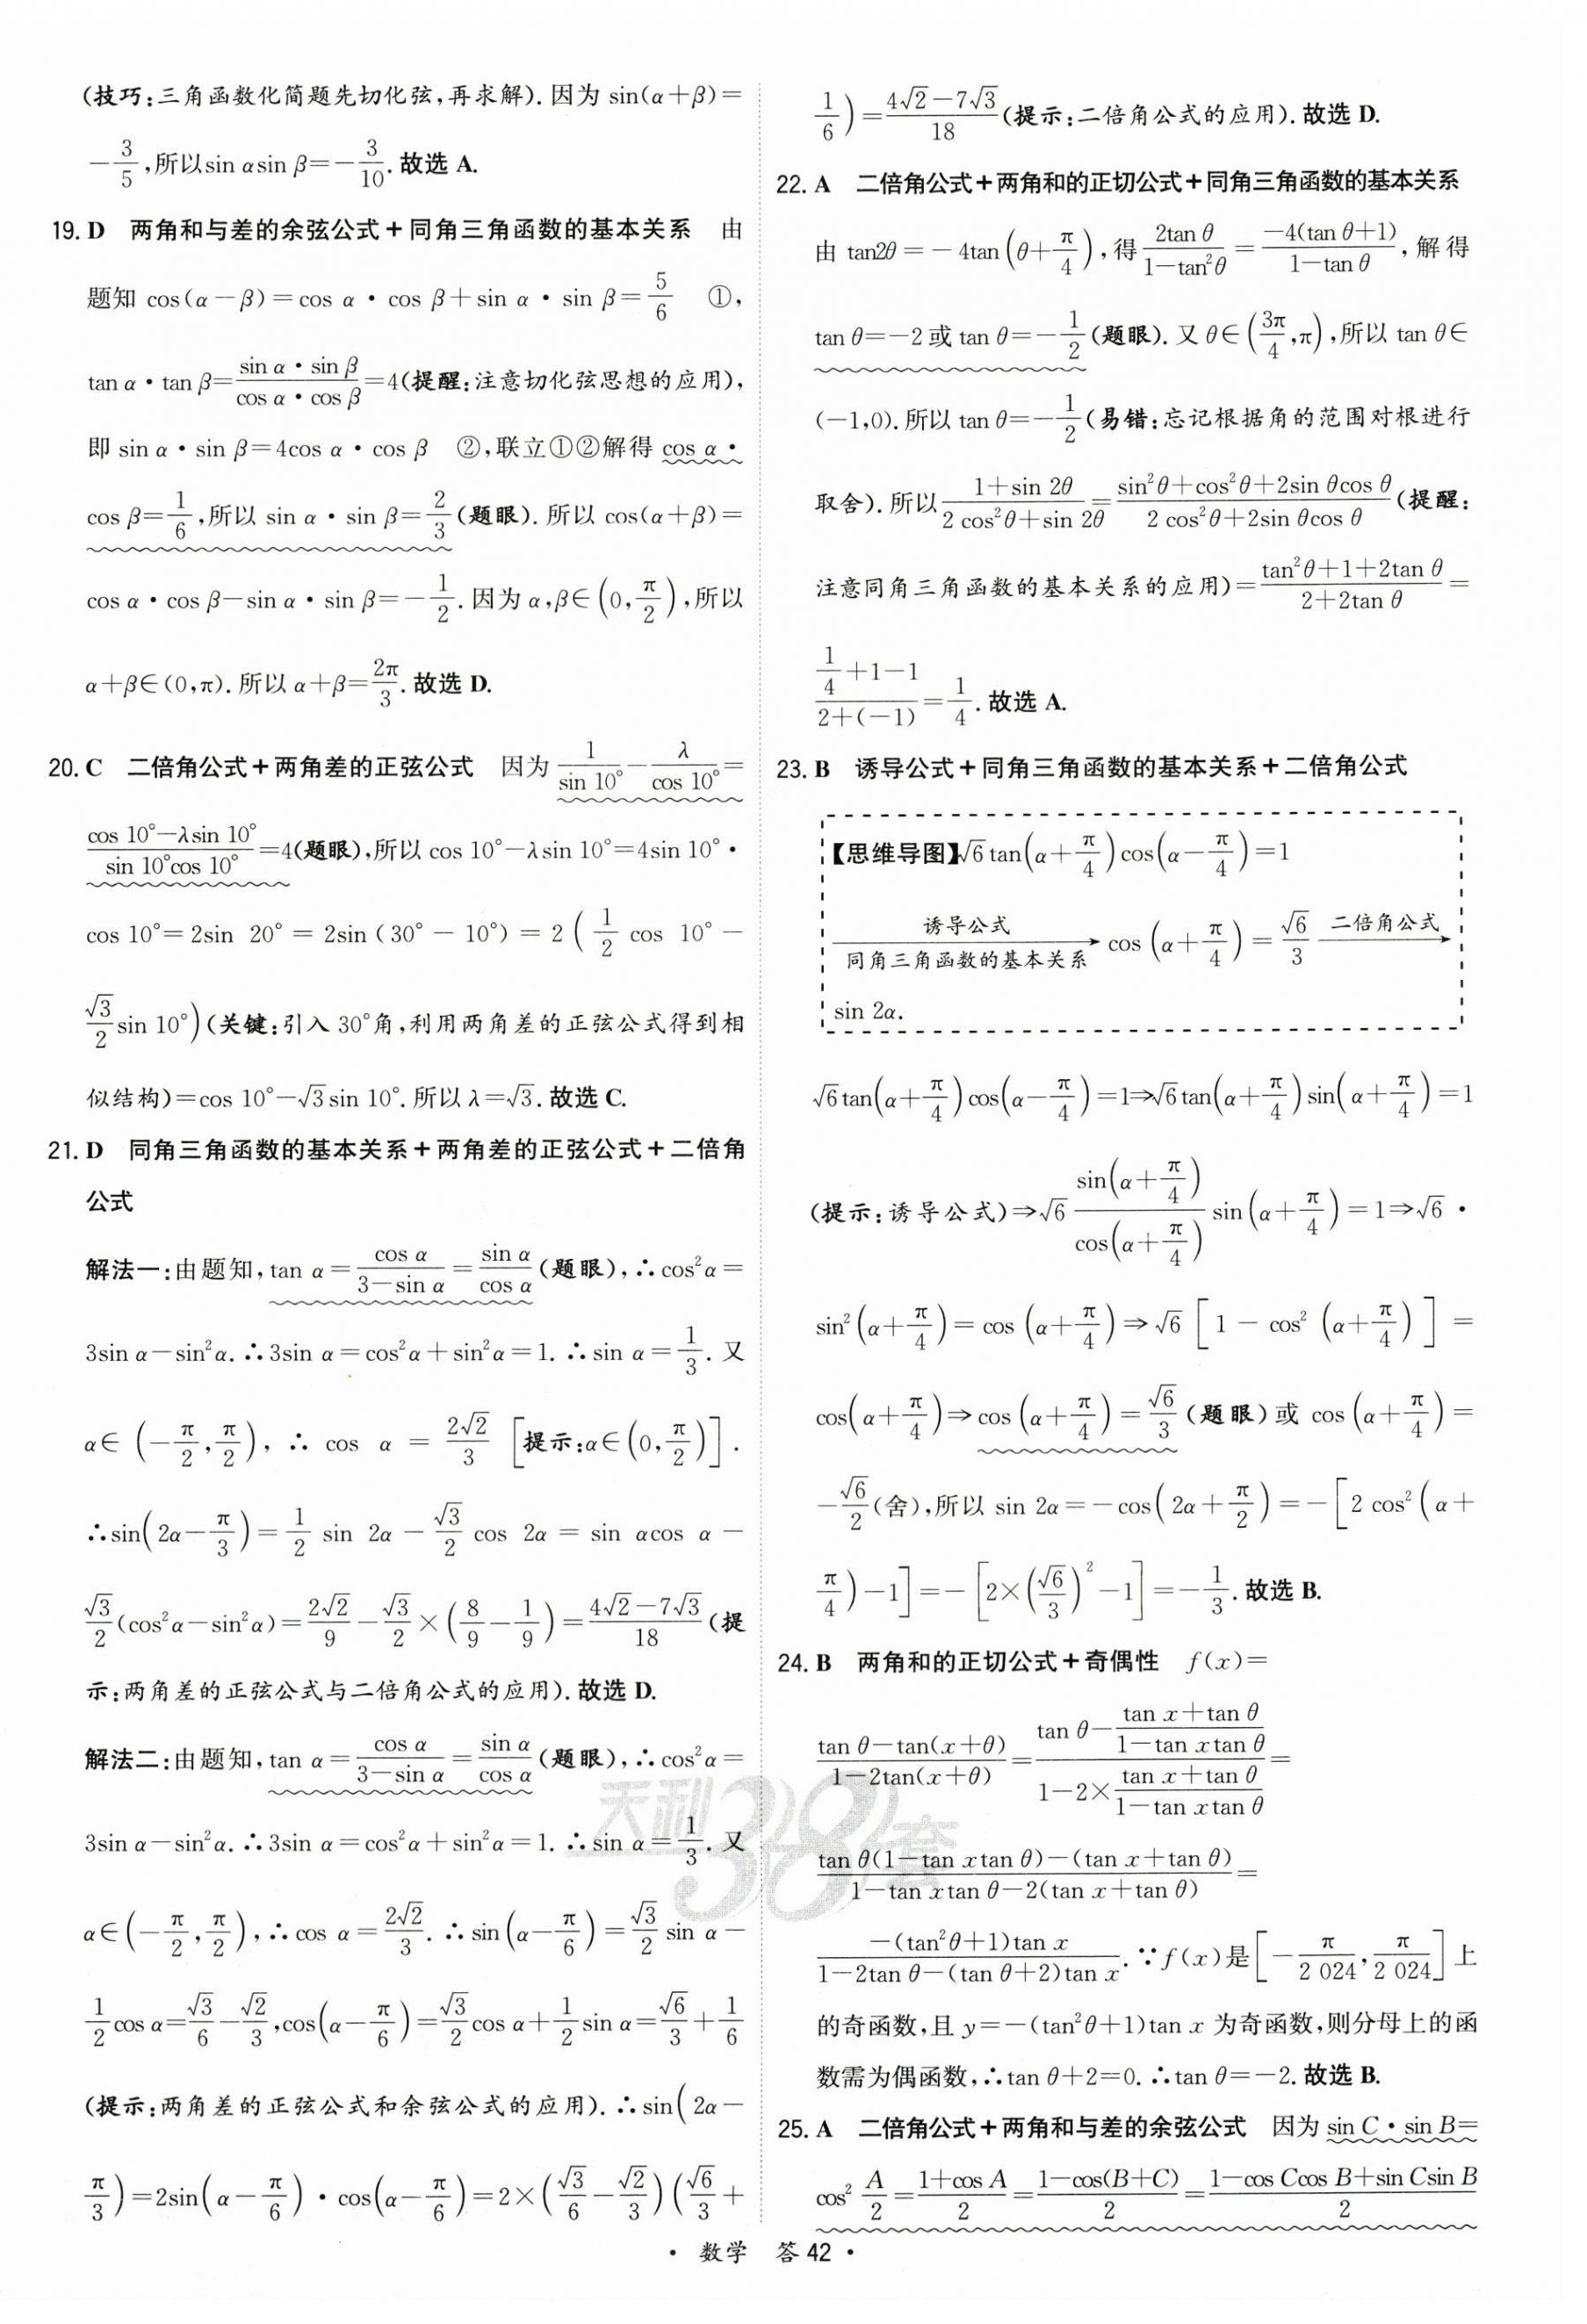 (技巧:三角函数化简题先切化弦,再求解). 因为 sin(α+β)=
-3/5,所以sin αsin β=-3/10. 故选 A.
19. D 两角和与差的余弦公式+同角三角函数的基本关系 由
题知 cos(α-β)=cos α·cos β+sin α·sin β=5/6 ①,
tan α·tan β=(sin α·sin β)/(cos α·cos β)=4(提醒:注意切化弦思想的应用),
即 sin α·sin β=4cos α·cos β ②,联立①②解得 cos α·
cos β=1/6,所以 sin α·sin β=2/3(题眼). 所以 cos(α+β)=
cos α·cos β-sin α·sin β=-1/2. 因为 α,β∈(0,π/2),所以
α+β∈(0,π). 所以 α+β=2π/3. 故选 D.
20. C 二倍角公式+两角差的正弦公式 因为 1/(sin 10°)-λ/(cos 10°)=
(cos 10°-λsin 10°)/(sin 10°cos 10°)=4(题眼),所以 cos 10°-λsin 10°=4sin 10°·
cos 10°=2sin 20°=2sin(30°-10°)=2(1/2 cos 10°-
√3/2 sin 10°)(关键:引入 30°角,利用两角差的正弦公式得到相
似结构)=cos 10°-√3sin 10°. 所以 λ=√3. 故选 C.
21. D 同角三角函数的基本关系+两角差的正弦公式+二倍角
公式
解法一:由题知,tan α=cos α/(3-sin α)=sin α/cos α(题眼),∴cos²α=
3sin α-sin²α. ∴3sin α=cos²α+sin²α=1. ∴sin α=1/3. 又
α∈(-π/2,π/2),∴cos α=2√2/3 [提示:α∈(0,π/2)].
∴sin(2α-π/3)=1/2 sin 2α-√3/2 cos 2α=sin αcos α-
√3/2(cos²α-sin²α)=2√2/9-√3/2×(8/9-1/9)=(4√2-7√3)/18(提
示:两角差的正弦公式与二倍角公式的应用). 故选 D.
解法二:由题知,tan α=cos α/(3-sin α)=sin α/cos α(题眼),∴cos²α=
3sin α-sin²α. ∴3sin α=cos²α+sin²α=1. ∴sin α=1/3. 又
α∈(-π/2,π/2),∴cos α=2√2/3. ∴sin(α-π/6)=√3/2 sin α-
1/2 cos α=√3/6-√2/3,cos(α-π/6)=√3/2 cos α+1/2 sin α=√6/3+1/6
(提示:两角差的正弦公式和余弦公式的应用). ∴sin(2α-
π/3)=2sin(α-π/6)·cos(α-π/6)=2×(√3/6-√2/3)(√6/3+
1/6)=(4√2-7√3)/18(提示:二倍角公式的应用). 故选 D.
22. A 二倍角公式+两角和的正切公式+同角三角函数的基本关系
由 tan2θ=-4tan(θ+π/4),得 2tan θ/(1-tan²θ)=-4(tan θ+1)/(1-tan θ),解得
tan θ=-2或 tan θ=-1/2(题眼). 又 θ∈(3π/4,π),所以 tan θ∈
(-1,0). 所以 tan θ=-1/2(易错:忘记根据角的范围对根进行
取舍). 所以 (1+sin 2θ)/(2 cos²θ+sin 2θ)=(sin²θ+cos²θ+2sin θcos θ)/(2 cos²θ+2sin θcos θ)(提醒:
注意同角三角函数的基本关系的应用)=(tan²θ+1+2tan θ)/(2+2tan θ)=
(1/4+1-1)/(2+(-1))=1/4. 故选 A.
23. B 诱导公式+同角三角函数的基本关系+二倍角公式
【思维导图】√6tan(α+π/4)cos(α-π/4)=1
诱导公式
同角三角函数的基本关系 → cos(α+π/4)=√6/3 二倍角公式→
sin 2α.
√6tan(α+π/4)cos(α-π/4)=1⇒√6tan(α+π/4)sin(α+π/4)=1
(提示:诱导公式)⇒√6 sin(α+π/4)/cos(α+π/4) sin(α+π/4)=1⇒√6·
sin²(α+π/4)=cos(α+π/4)⇒√6[1-cos²(α+π/4)]=
cos(α+π/4)⇒cos(α+π/4)=√6/3(题眼)或 cos(α+π/4)=
-√6/2(舍),所以 sin 2α=-cos(2α+π/2)=-[2 cos²(α+
π/4)-1]=-[2×(√6/3)²-1]=-1/3. 故选 B.
24. B 两角和的正切公式+奇偶性 f(x)=
(tan θ-tan(x+θ))/(1-2tan(x+θ))=(tan θ-(tan x+tan θ)/(1-tan xtan θ))/(1-2×(tan x+tan θ)/(1-tan xtan θ))=
(tan θ(1-tan xtan θ)-(tan x+tan θ))/(1-tan xtan θ-2(tan x+tan θ))=
-(tan²θ+1)tan x/(1-2tan θ-(tan θ+2)tan x). ∵f(x)是[-π/2 024,π/2 024]上
的奇函数,且 y=-(tan²θ+1)tan x 为奇函数,则分母上的函
数需为偶函数,∴tan θ+2=0. ∴tan θ=-2. 故选 B.
25. A 二倍角公式+两角和与差的余弦公式 因为 sin C·sin B=
cos² A/2=(1+cos A)/2=(1-cos(B+C))/2=(1-cos Ccos B+sin Csin B)/2
·数学 答 42·
天利38套